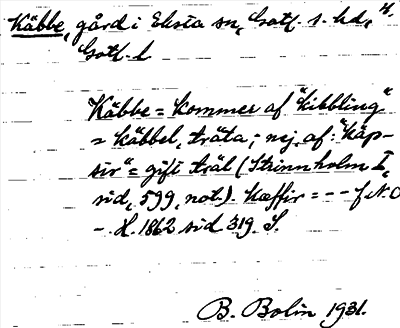 Käbbe, gård i Eksta sn, Gotl. s. hd, H.
Gotl. l
Käbbe = kommer af "kibbling"
= käbbel, träta; nej, af: "käp-
sir" = gift träl (Strinnholm I,
sid, 599, not.). Kæffir = --
-. H. 1862 sid 319. S.
B. Bolin 1931.